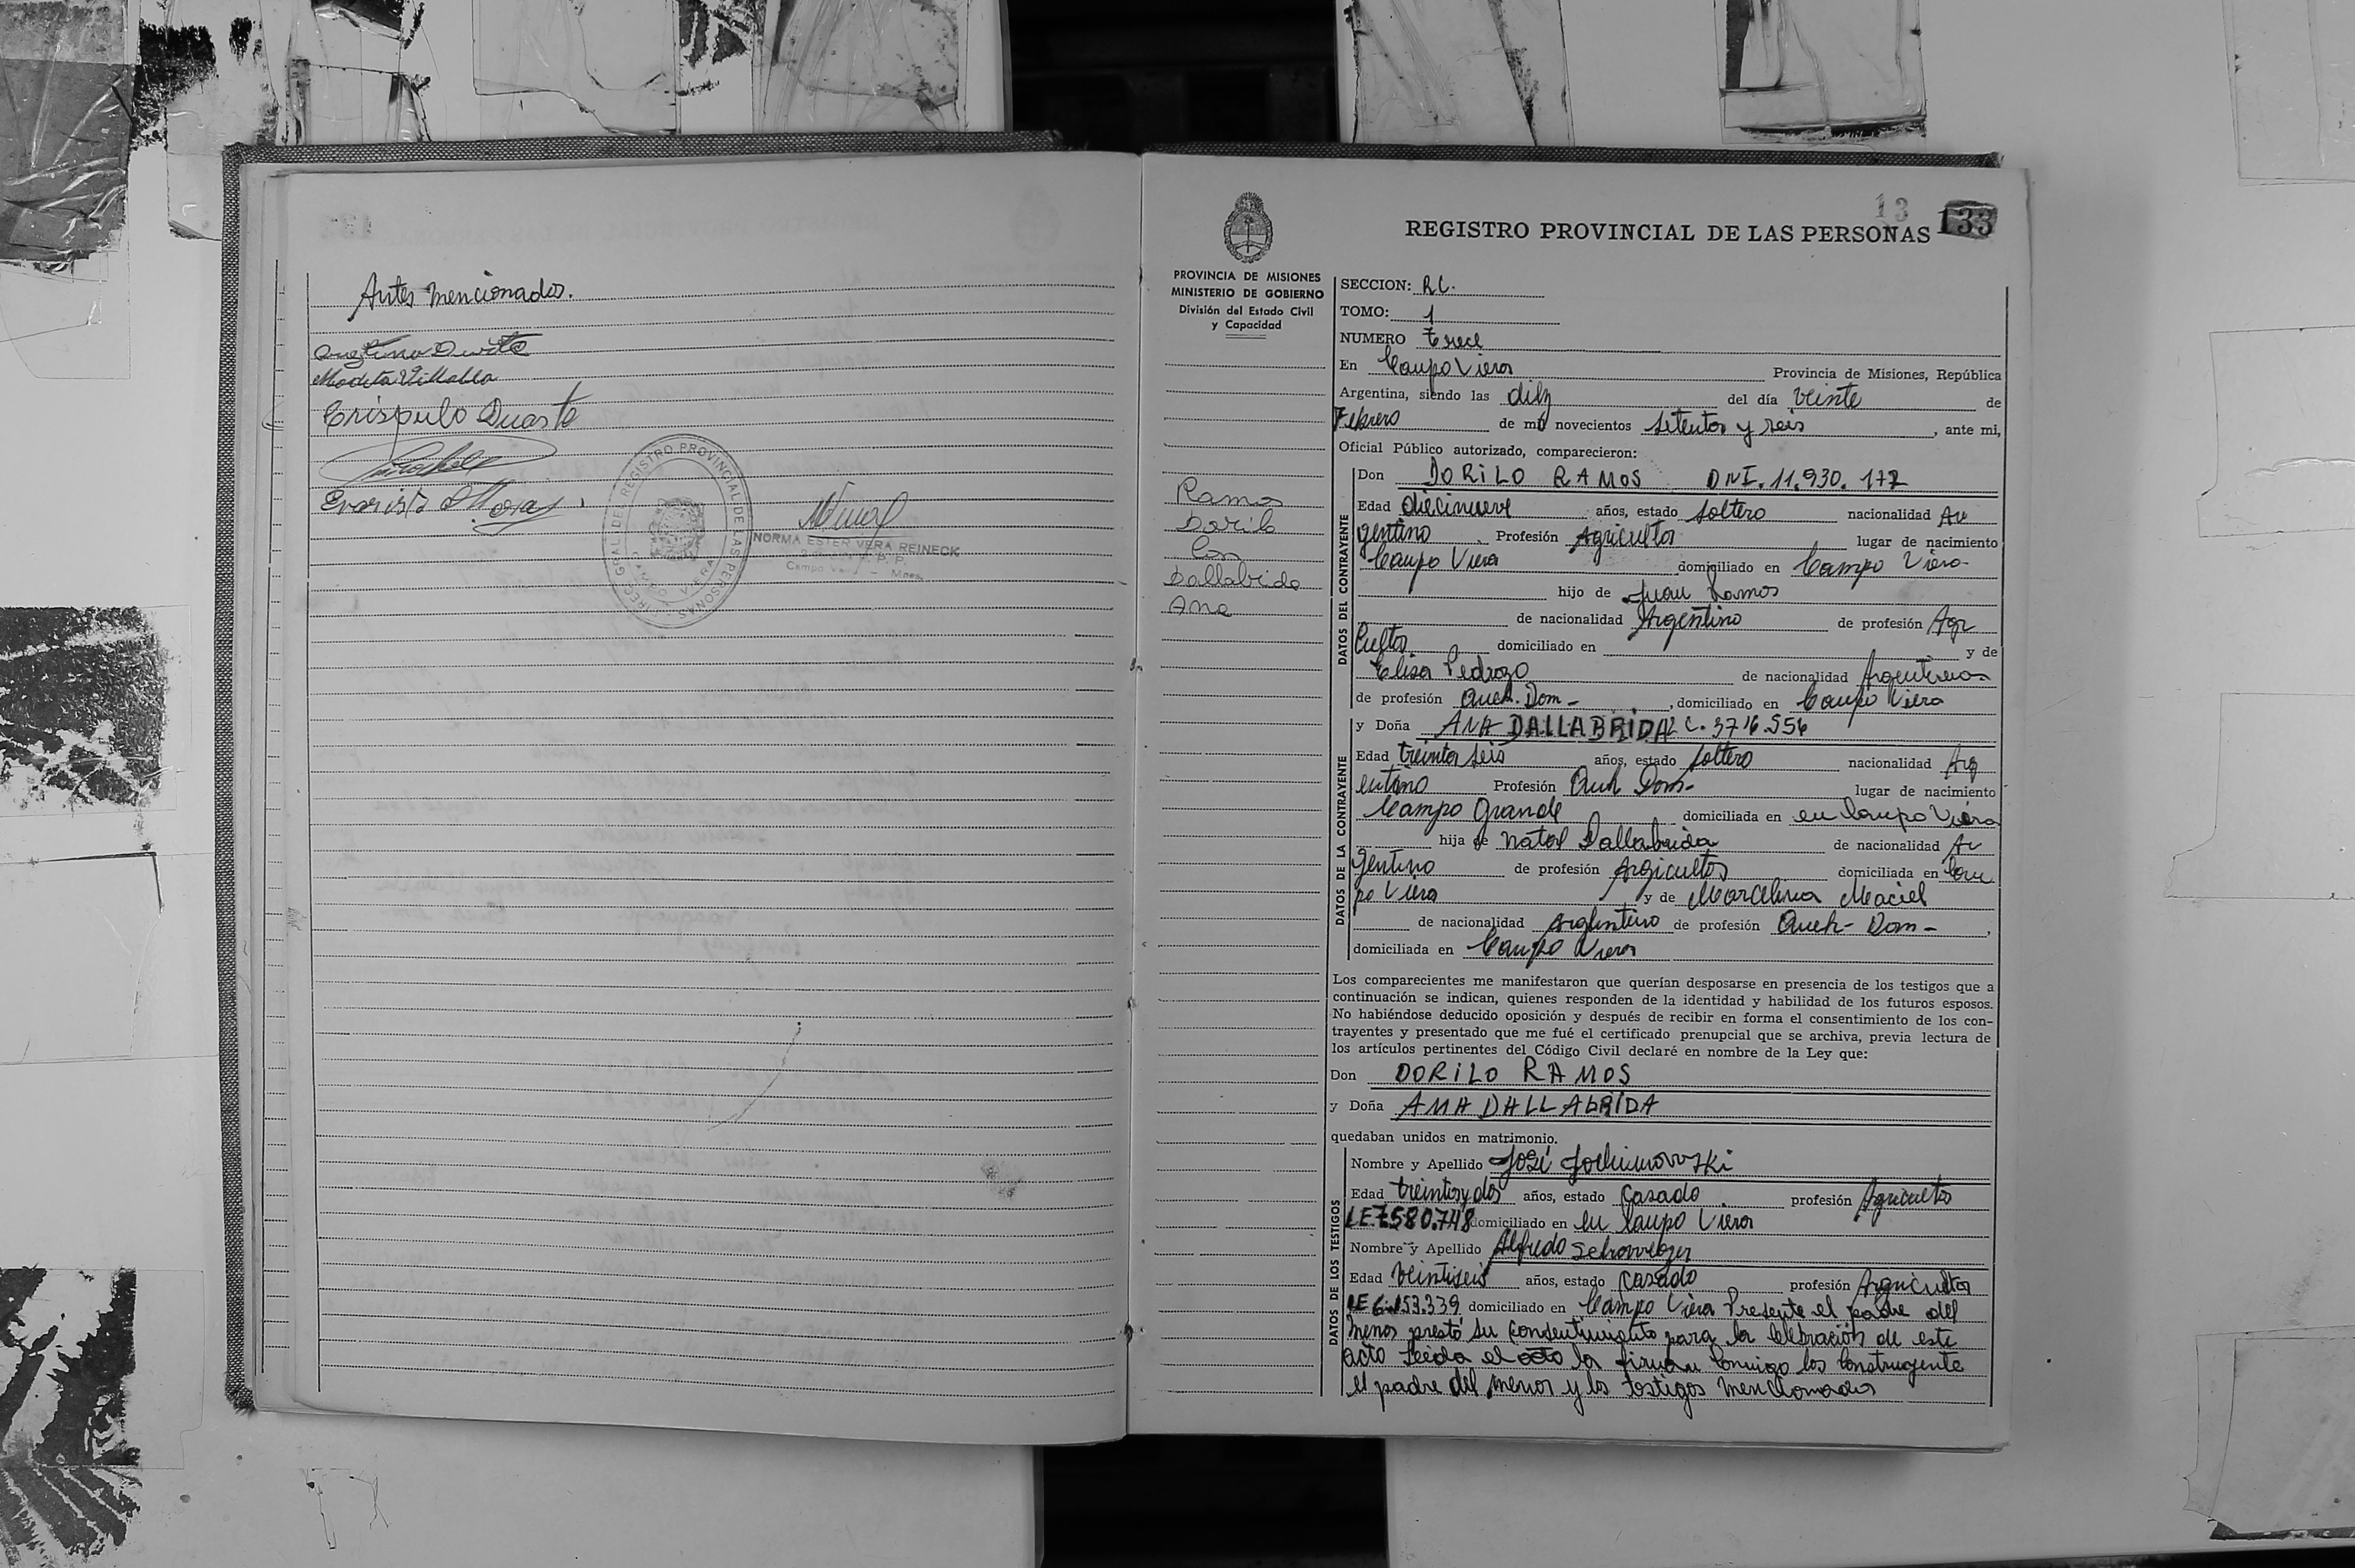 Antes mencionados.
Modesta Villalba
Críspulo Duarte
Evaristo
DIREC. GRAL. DEL REGISTRO PROVINCIAL DE LAS PERSONAS
CAMPO VIERA
NORMA ESTER VERA REINECK
Campo Viera - Mnes.
13
REGISTRO PROVINCIAL DE LAS PERSONAS 133
PROVINCIA DE MISIONES
MINISTERIO DE GOBIERNO
División del Estado Civil
y Capacidad
Ramos
Dorilo
Con
Dallabrida
Ana
SECCION: R.C.
TOMO: 1
NUMERO Trece
En Campo Viera Provincia de Misiones, República
Argentina, siendo las diez del día veinte de
Febrero de mil novecientos setenta y seis, ante mi,
Oficial Público autorizado, comparecieron:
DATOS DEL CONTRAYENTE
Don DORILO RAMOS DNI. 11.930.177
Edad diecinueve años, estado soltero nacionalidad Ar
gentino Profesión Agricultor lugar de nacimiento
Campo Viera domiciliado en Campo Viera
hijo de Juan Ramos
de nacionalidad Argentino de profesión Agr
cultor domiciliado en y de
Elisa Pedrozo de nacionalidad Argentina
de profesión Queh. Dom-, domiciliado en Campo Viera
DATOS DE LA CONTRAYENTE
y Doña ANA DALLABRIDA L C. 3716.556
Edad treinta seis años, estado soltero nacionalidad Arg
entino Profesión Queh Dom- lugar de nacimiento
Campo Grande domiciliada en en Campo Viera
hija de Natal Dallabrida de nacionalidad Ar
gentino de profesión Argicultor domiciliada en Cam
po Viera y de Marcelina Maciel
de nacionalidad Argentino de profesión Queh- Dom-,
domiciliada en Campo Viera
Los comparecientes me manifestaron que querían desposarse en presencia de los testigos que a
continuación se indican, quienes responden de la identidad y habilidad de los futuros esposos.
No habiéndose deducido oposición y después de recibir en forma el consentimiento de los con-
trayentes y presentado que me fué el certificado prenupcial que se archiva, previa lectura de
los artículos pertinentes del Código Civil declaré en nombre de la Ley que:
Don DORILO RAMOS
y Doña ANA DALLABRIDA
quedaban unidos en matrimonio.
DATOS DE LOS TESTIGOS
Nombre y Apellido José
Edad treinta y dos años, estado Casado profesión Agricultor
LE.7.580.748 domiciliado en en Campo Viera
Nombre y Apellido Alfredo
Edad Veintiseis años, estado Casado profesión Agricultor
LE 6.153.339 domiciliado en Campo Viera Presente el padre del
menor prestó su consentimiento para la celebración de este
acto Leida el acto la firman conmigo los
el padre del menor y los testigos mencionados